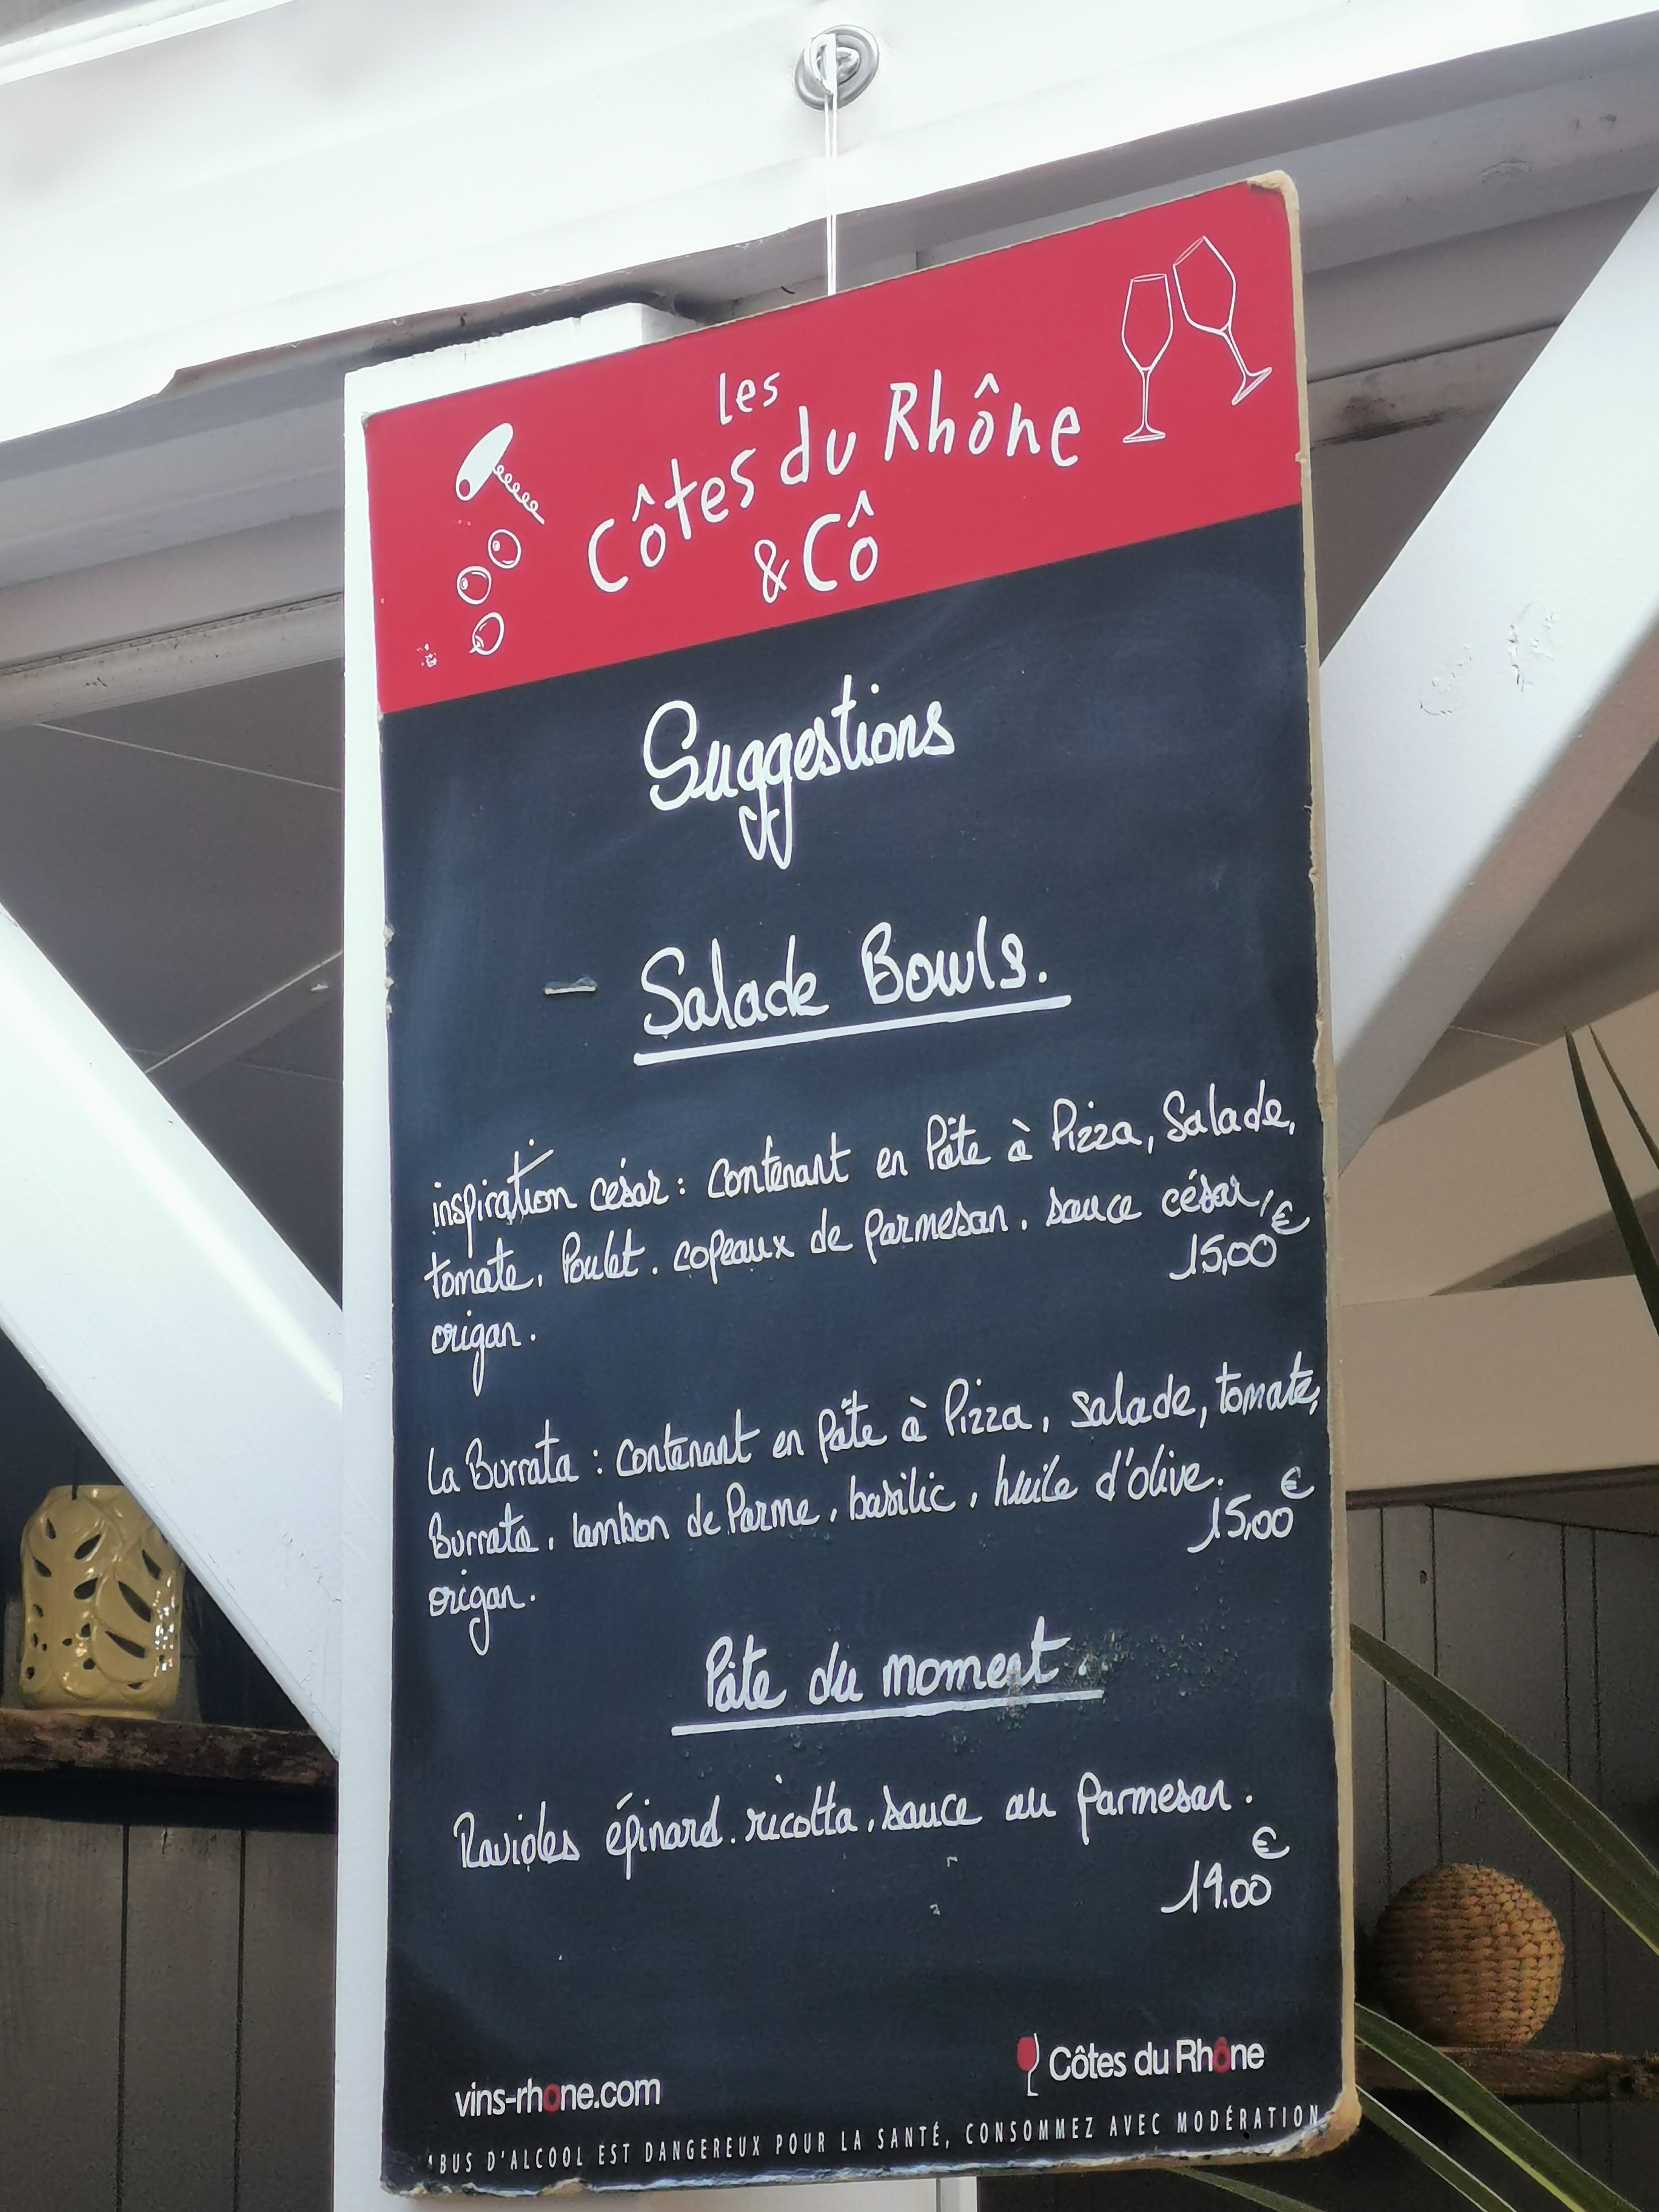 les
Côtes du Rhône
&Cô
Suggestions
Salade Bowls.
inspiration césar : contenant en Pâte à Pizza, Salade,
tomate, Poulet, copeaux de parmesan, sauce césar,
15,00€
origan.
La Burrata : contenant en pâte à Pizza, salade, tomate,
Burrata, Jambon de Parme, basilic, huile d'olive.
15,00€
origan.
Pâte du moment.
Ravioles épinard, ricotta, sauce au parmesan.
14.00€
Côtes du Rhône
vins-rhone.com
ABUS D'ALCOOL EST DANGEREUX POUR LA SANTÉ, CONSOMMEZ AVEC MODÉRATION